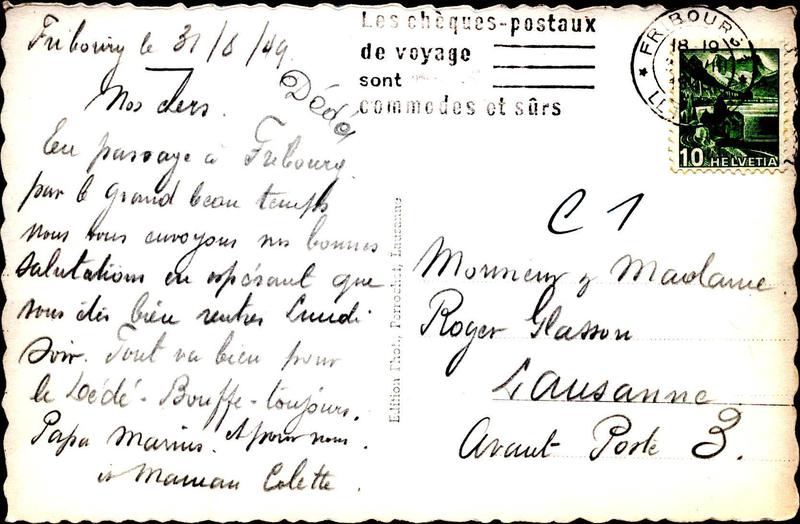 Fribourg le 31/8/49.
Dédé
Nos chers.
En passage à Fribourg
par le grand beau temps
nous vous envoyons nos bonnes
salutations en espérant que
vous êtes bien rentrés Lundi
soir. Tout va bien pour
le Dédé - Bouffe - toujours.
Papa Marius.
et Maman Colette.
Les chèques-postaux
de voyage
sont
commodes et sûrs
FRIBOURG
10 HELVETIA
C 1
Monsieur & Madame
Roger Glasson
Lausanne
Avant Poste 3.
Edition Phot., Perrochet, Lausanne